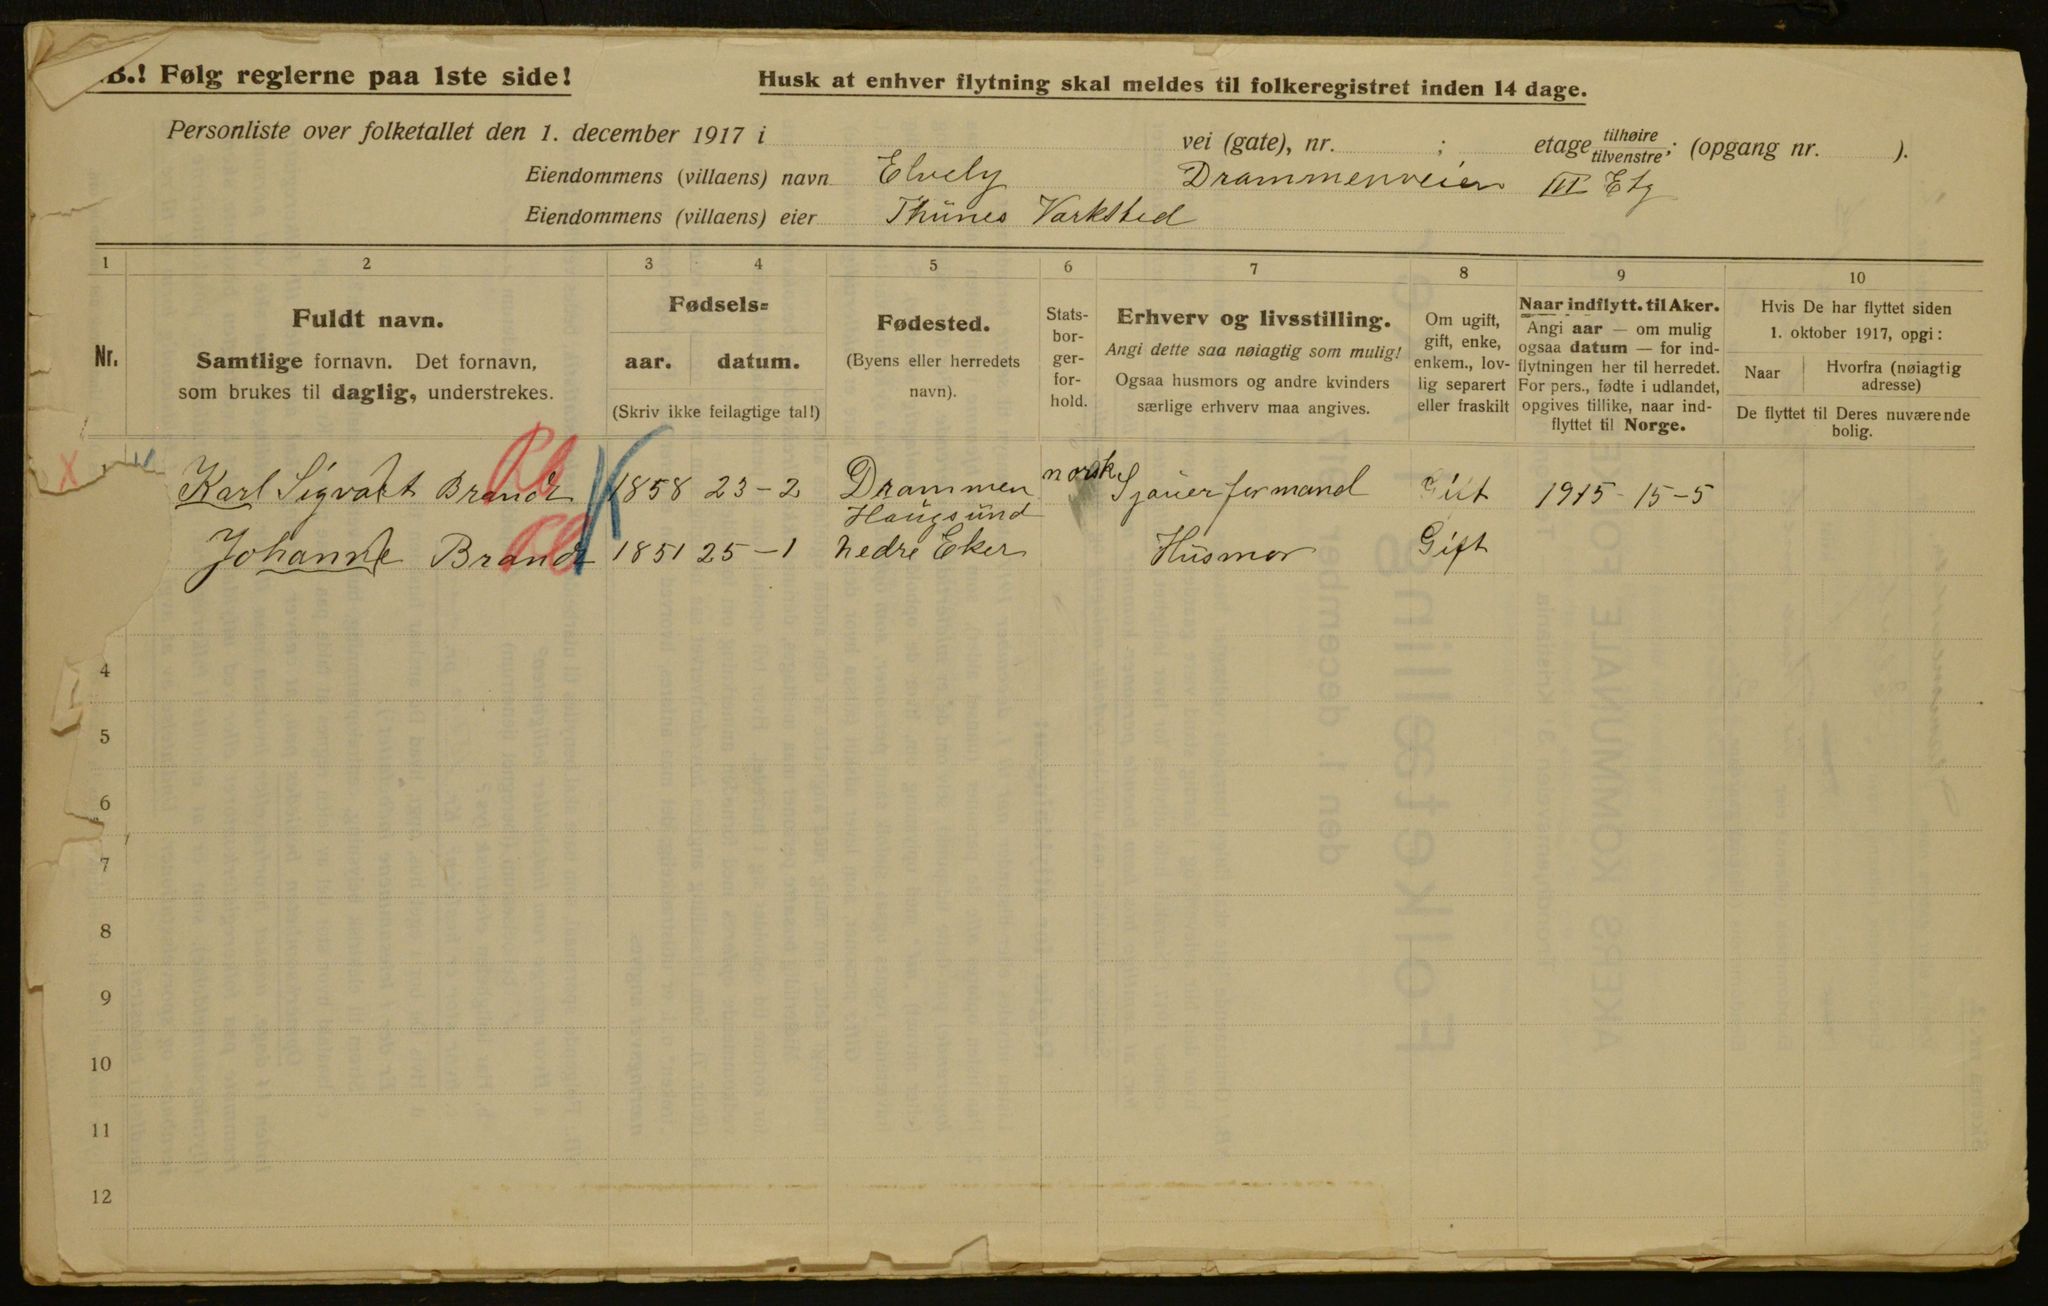 B.! Følg reglerne paa 1ste side!
Husk at enhver flytning skal meldes til folkeregistret inden 14 dage.
Personliste over folketallet den 1. december 1917 i vei (gate), nr. ; etage tilhøire tilvenstre ; (opgang nr. ).
Eiendommens (villaens) navn Elvely Drammenveien III Etg
Eiendommens (villaens) eier Thünes Varksted
1 2 3 4 5 6 7 8 9 10
Nr.
Fuldt navn.
Samtlige fornavn. Det fornavn,
som brukes til daglig, understrekes.
Fødsels=
aar. datum.
(Skriv ikke feilagtige tal!)
Fødested.
(Byens eller herredets
navn).
Stats-
bor-
ger-
for-
hold.
Erhverv og livsstilling.
Angi dette saa nøiagtig som mulig!
Ogsaa husmors og andre kvinders
særlige erhverv maa angives.
Om ugift,
gift, enke,
enkem., lov-
lig separert
eller fraskilt
Naar indflytt. til Aker.
Angi aar — om mulig
ogsaa datum — for ind-
flytningen her til herredet.
For pers., fødte i udlandet,
opgives tillike, naar ind-
flyttet til Norge.
Hvis De har flyttet siden
1. oktober 1917, opgi:
Naar
Hvorfra (nøiagtig
adresse)
De flyttet til Deres nuværende
bolig.
X K
Karl Sigvart Brandt 1858 23-2 Drammen norsk Sjauerformand Gift 1915-15-5
Haugsund
Johanne Brandt 1851 25-1 nedre Eker Husmor Gift
4
5
6
7
8
9
10
11
12